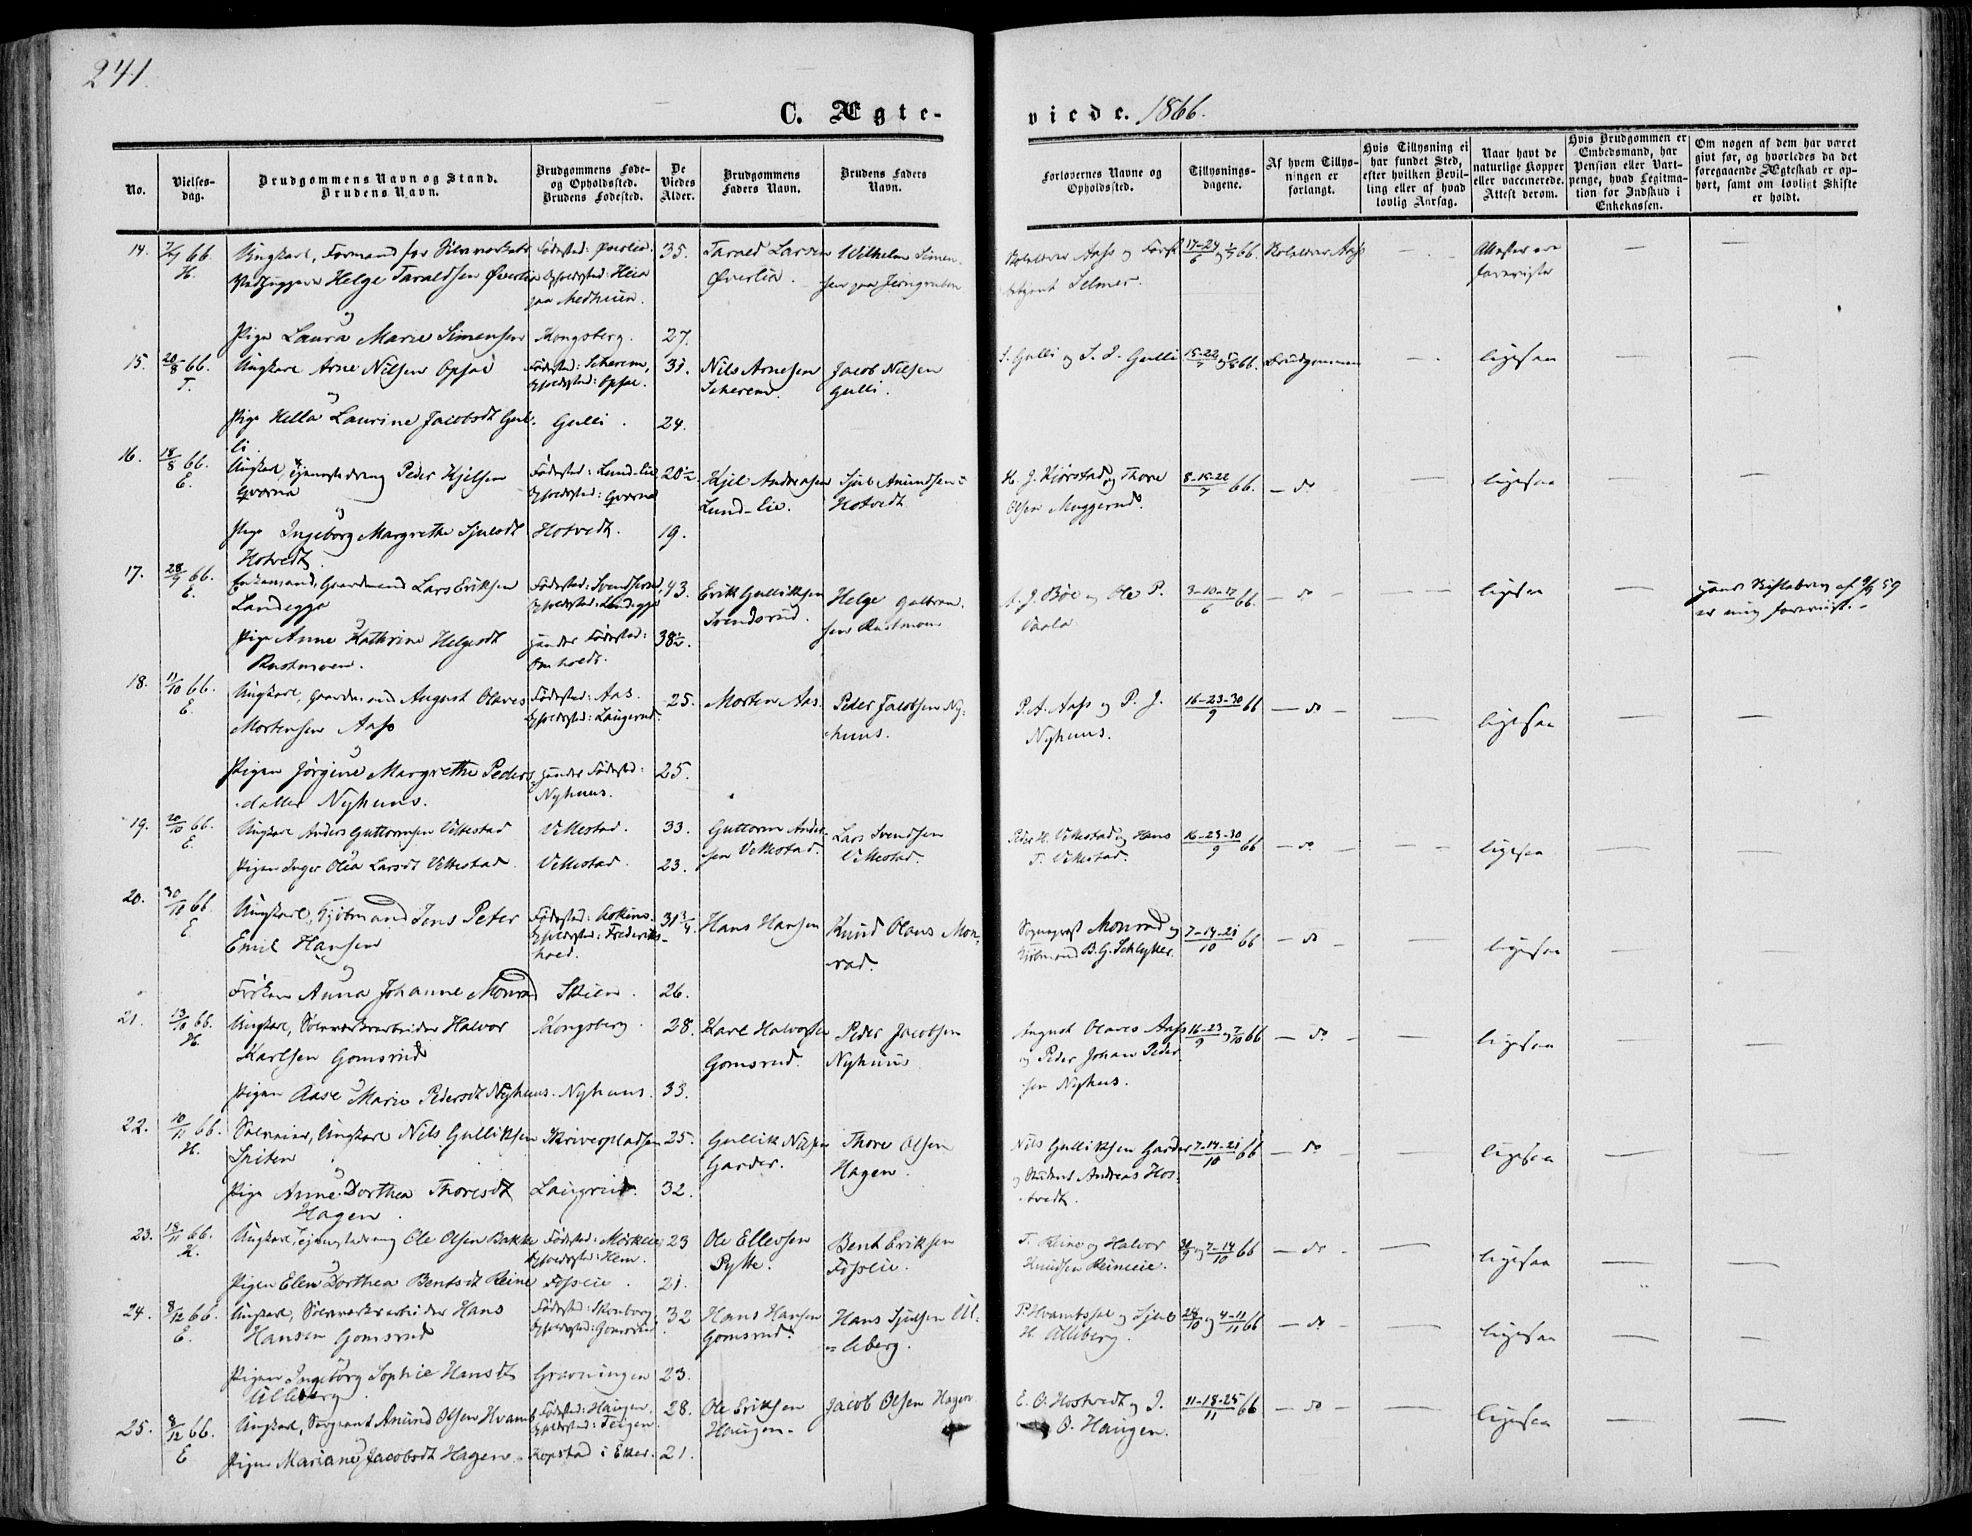 241.
C. Ægte-
viede. 1866.
No.
Vielses-
dag.
Brudgommens Navn og Stand.
Brudens Navn.
Brudgommens Føde-
og Opholdssted.
Brudens Fødested.
De
Viedes
Alder.
Brudgommens
Faders Navn.
Brudens Faders
Navn.
Forlovernes Navne og
Opholdssted.
Tillysnings-
dagene.
Af hvem Tillys-
ningen er
forlangt.
Hvis Tillysning ei
har fundet Sted,
efter hvilken Bevil-
ling eller af hvad
lovlig Aarsag.
Naar havt de
naturlige Kopper
eller vaccinerede.
Attest derom.
Hvis Brudgommen er
Embedsmand, har
Pension eller Vart-
penge, hvad Legitima-
tion for Indskud i
Enkekassen.
Om nogen af dem har været
givt før, og hvorledes da det
foregaaende Ægteskab er op-
hørt, samt om lovligt Skifte
er holdt.
14. 66. Ungkarl, Formand for Sølvværkets Fødested: Øverlia. 35. Tarald Larsen Wilhelm Simen-
H. Helge Taraldsen Øverlia Opholdssted: Heia Øverlia. sen paa Jerngruben
paa Medheien.
og
Pige Laura Marie Simensen Kongsberg. 27.
Selmer.
17-24/6 og 1/7 66.
Attester ere
foreviste
15. 20/8 66. Ungkarl Arne Nilsen Opsal Fødested: Skherem, 31. Nils Arnesen Jacob Nilsen
T. Opholdssted: Opsal. Skherem. Gulli.
og
Pige Hella Laurine Jacobsdt Gul- Gulli. 24.
li.
S. Gulli og S. J. Gulli 15-22/7 66. Brudgommen ligesaa
16. 18/8 66. Ungkarl, Peder Kjelsen Fødested: Lund-lie 20½ Kjel Andersen Sjul Amundsen
E. Qværna Opholdssted: Qværna Lund-lie. Hotvedt
og
Pige Ingeborg Margrethe Sjulsdt Hotvedt. 19.
Hotvedt.
H. J. Kjørstad og Thore 8-15-22/7 66. do ligesaa
Olsen Muggerud.
17. 28/9 66. Enkemand, Gaardmand Lars Eriksen Fødested: Svendsrud, 43. Erik Gulliksen Helge Gulbran-
E. Landegge Opholdssted: Landegge Svendsrud. sen Rustmoen
og
Pige Anne Kathrine Helgesdt hendes Fødested: 38½.
Rustmoen. Omholdt.
A. J. Bøe og Ole P. 3-10-17/6 66. do ligesaa hans Skiftebrev af 59
er mig forevist.
18. 11/10 66. Ungkarl, Gaardmand August Olaves Fødested: Aas. 25. Morten Aas. Peder Jacobsen Ny-
E. Mortensen Aass Opholdssted: Laugerud. huus.
og
Pigen Jørgine Margrethe Peders- hendes Fødested: 25.
datter Nyhuus. Nyhuus.
P. A. Aass og P. J. 16-23-30/9 66 do ligesaa
Nyhuus.
19. 20/10 66. Ungkarl Anders Guttormsen Vittestad Vittestad. 33. Guttorm Ander- Lars Svendsen
E. og sen Vittestad. Vittestad.
Pigen Inger Olea Larsdt Vittestad. Vittestad. 23.
Peder H. Vittestad og Hans 16-23-30/9 66 do ligesaa
T. Vittestad.
20. 30/10 66. Ungkarl, Jens Peter Fødested: 31¾. Hans Hansen Knud Olaus Mon-
E. Emil Hansen Opholdssted: Frederiks- rad.
hald.
og
Frøken Anna Johanne Monrad Skien. 26.
Sogneprest Monrad og 7-14-21/10 66 do ligesaa
B. G. Schlytter.
21. 13/10 66. Ungkarl, Sølvværksarbeider Halvor Kongsberg. 28. Karl Halvorsen Peder Jacobsen
H. Karlsen Gomsrud Gomsrud. Nyhuus
og
Pigen Aase Marie Pedersdt Nyhuus. Nyhuus. 33.
August Olaves Aass 16-23/9 og 7/10 66 do ligesaa
og Peder Johan Peder-
sen Nyhus.
22. 10/11 66. Ungkarl Nils Gulliksen Skriverpladsen 25. Gullik Nilsen Thore Olsen
H. Garder. Hagen.
og
Pige Anne Dorthea Thoresdt Laugerud. 32.
Hagen.
Nils Gulliksen Garder 7-14-21/10 66 do ligesaa
og Student Andreas Hos-
tvedt.
23. 18/11 66. Ungkarl, Ole Olsen Bakke Fødested: Mørkeie 23 Ole Ellevsen Bent Eriksen
H. Opholdssted: Hem. Pytte. Fosseie.
og
Pigen Elen Dorthea Bentsdt Reine Fosseie. 21.
T. Reine og Halvor 30/9 og 7-14/10 66 do ligesaa
Knudsen Reineeie.
24. 8/12 66. Ungkarl, Sølvværksarbeider Hans Fødested: Skonborg 32 Hans Hansen Hans Sjulsen Ul-
E. Hansen Gomsrud Opholdssted: Gomsrud. Gomsrud. leberg.
og
Pigen Ingeborg Sophie Hansdt Gravningen 23.
Ulleberg.
P. og Sjul 28/10 og 4-11/11 66 do ligesaa
H. Ulleberg.
25. 8/12 66. Ungkarl, Sergeant Amund Olsen Hvamb Fødested: Haugen. 28. Ole Eriksen Jacob Olsen Hagen
E Opholdssted: Teigen. Haugen.
og
Pigen Mariane Jacobsdt Hagen. Kopstad i Eker. 21.
E. O. Hostvedt og J. 11-18-25/11 66 do ligesaa
O. Haugen.